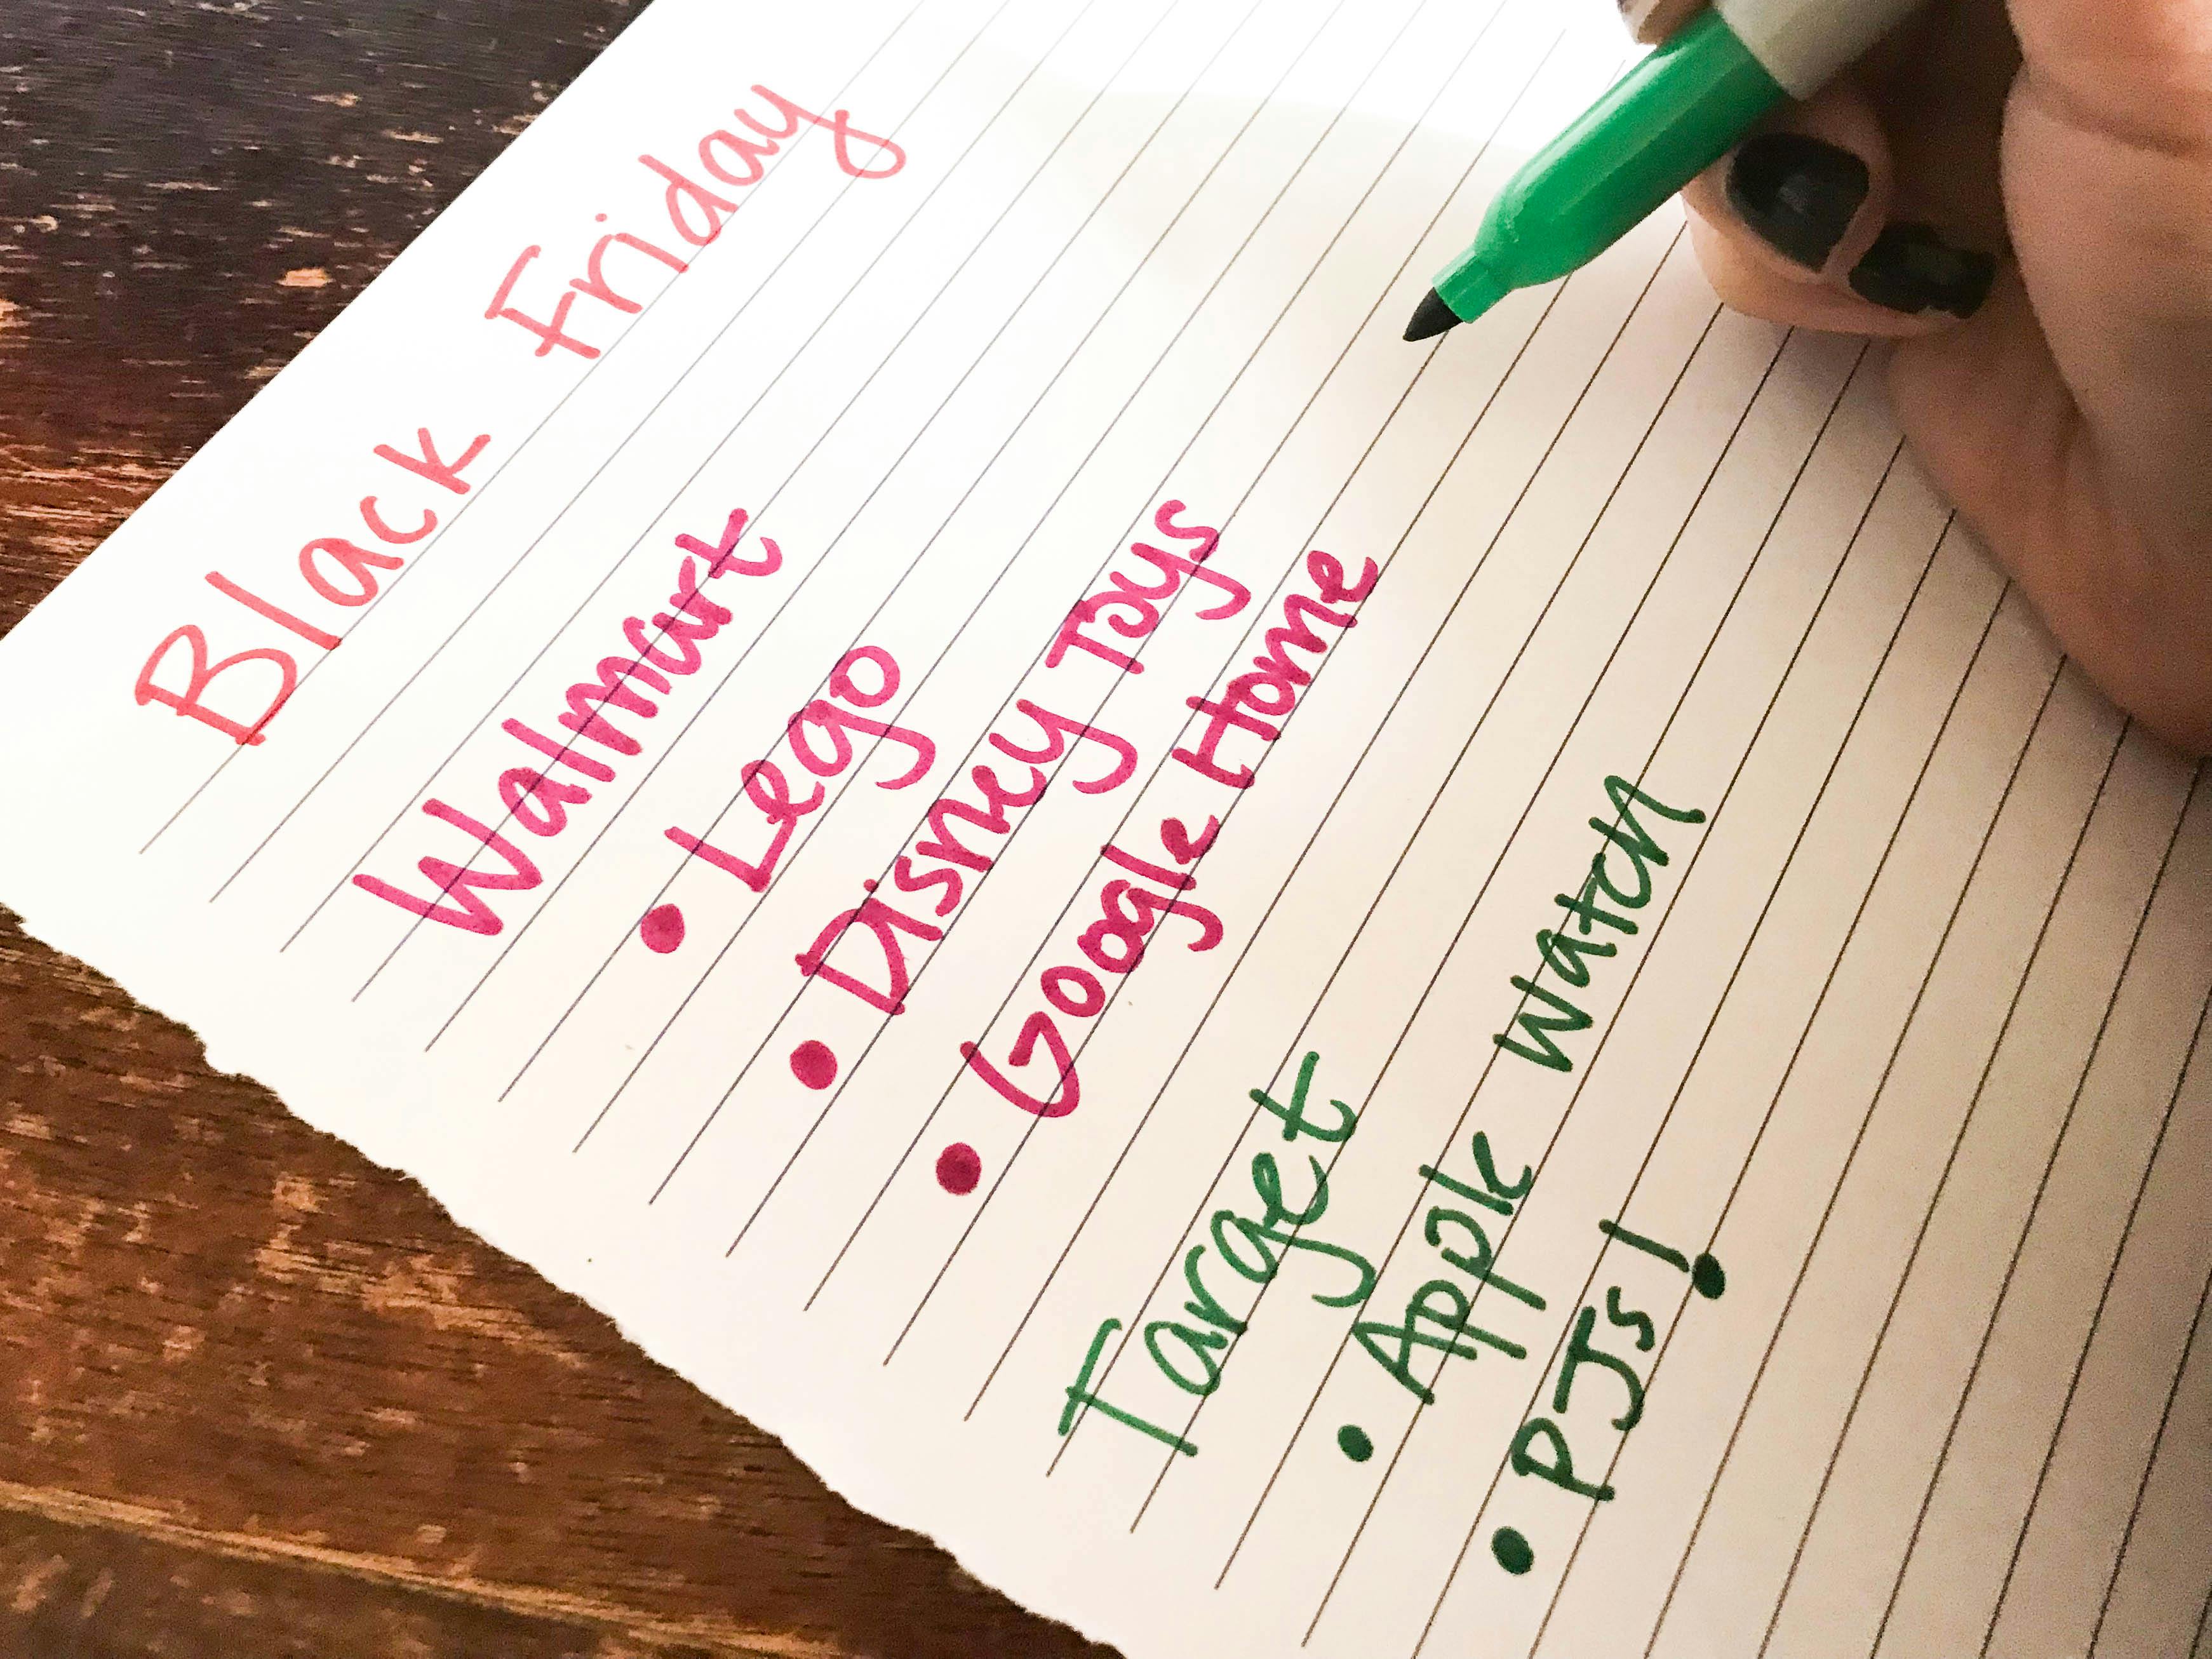 Black Friday
Walmart
• Lego
• Disney Toys
• Google Home
Target
• Apple Watch
• PJs!